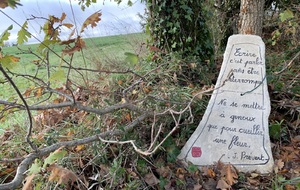 Écrire
c'est parler
sans être
interrompu
Ne se mettre
à genoux
que pour cueillir
une fleur
J. Prévert